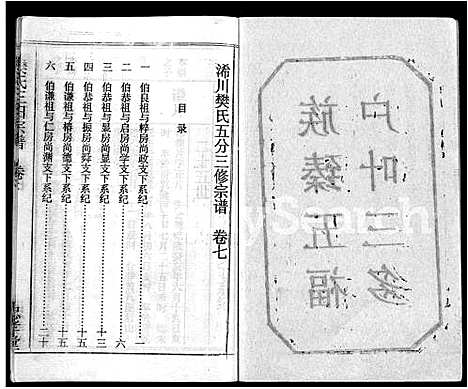 浠川樊氏五分三修宗谱 卷七
目录
一 伯良祖与稃房尚政文下系纪 一
二 伯恭祖与启房尚学文下系纪 六
三 伯恭祖与显房尚昊文下系纪 十三
四 伯恭祖与振房尚舜文下系纪 十五
五 伯谦祖与椿房尚德文下系纪 十五
六 伯谦祖与仁房尚渊文下系纪 二十
户叶三多
族臻五福